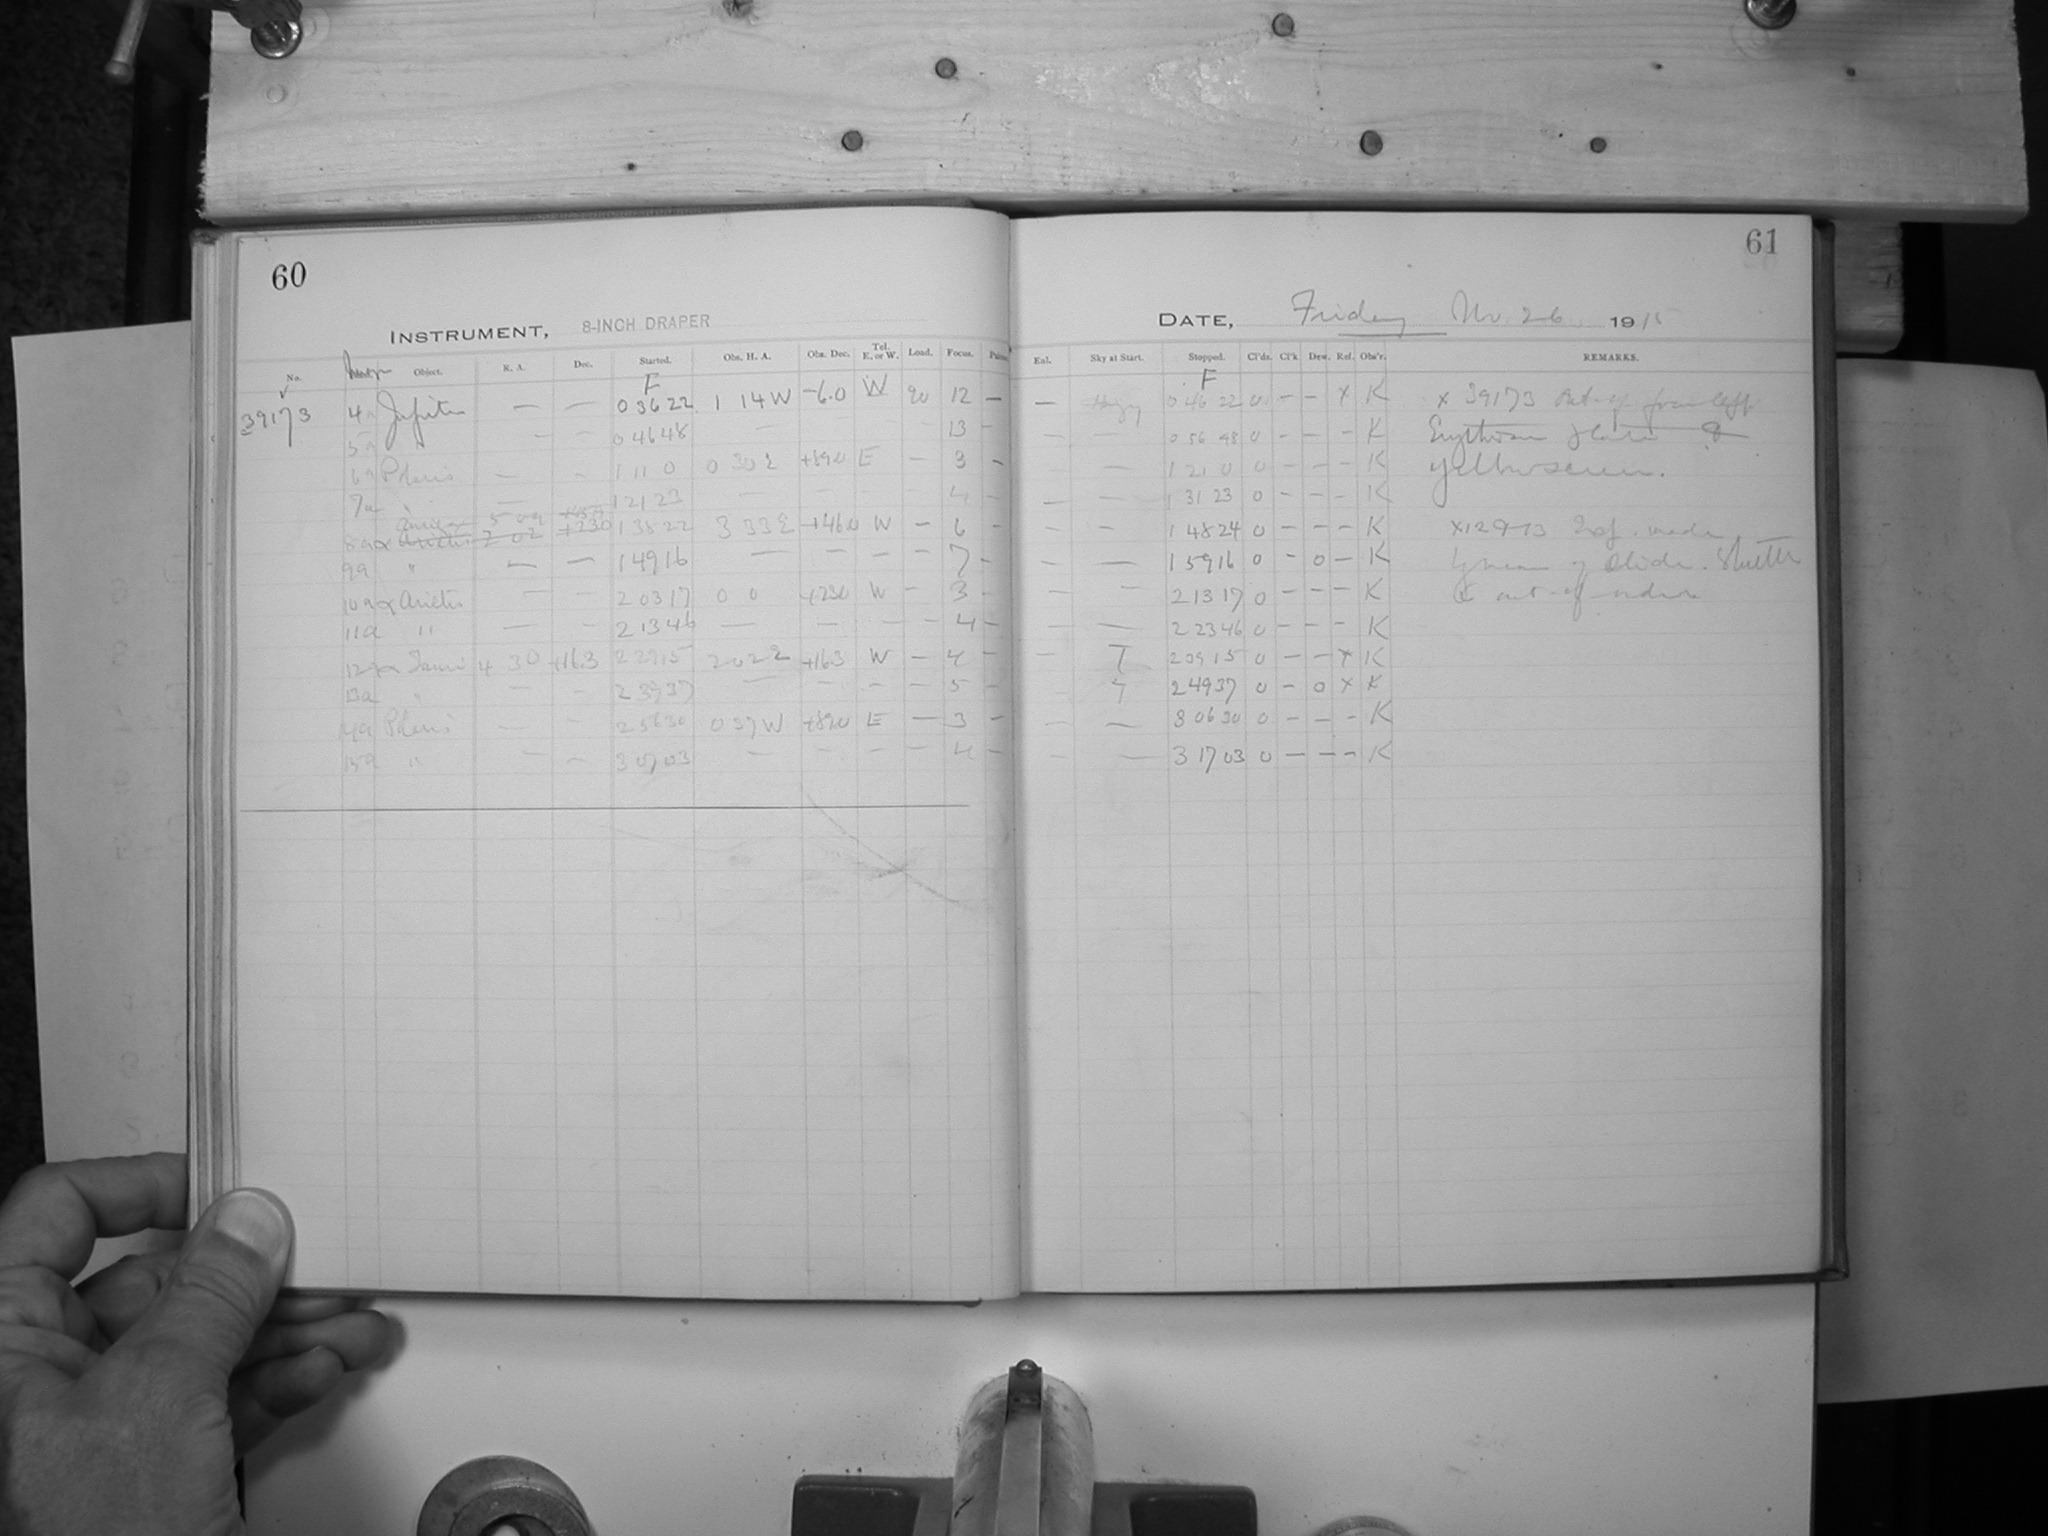 60
INSTRUMENT, 8-INCH DRAPER
No. Object. R. A. Dec. Started. Obs. H. A. Obs. Dec. Tel. E. or W. Load. Focus.
F
39173 4a Jupiter — — 0 36 22 1 14 W -6.0 W 90 12 —
5a " - - 0 46 48 — — — 13 -
6a Polaris — - 1 11 0 0 30 E +89.0 E — 3 -
7a " — 1 21 23 — - - - 4 -
5 09
8a α Arietis 2 02 +23.0 1 38 22 3 33 E +46.0 W — 6 -
9a " — — 1 49 16 — — — — 7 -
10a α Arietis — — 2 03 17 0 0 +23.0 W — 3 -
11a " — - 2 13 46 — — - - 4 —
12a α Tauri 4 30 +16.3 2 29 15 2 02 E +16.3 W — 4 -
13a " — — 2 39 37 — — — — 5 -
14a Polaris — - 2 56 30 0 37 W +89.0 E — 3 -
15a " — — 3 07 03 — — - — 4 -
61
DATE, Friday Nov. 26 1915
Eal. Sky at Start. Stopped. Cl'ds. Cl'k Dew. Ref. Obs'r. REMARKS.
F
— Hazy 0 46 22 0 - - x K x 39173
— — 0 56 48 0 - - - K
— — 1 21 0 0 - - - K yellow screen.
— — 1 31 23 0 - - - K
— — 1 48 24 0 - - - K made
- — 1 59 16 0 - 0 - K slide. Shutter
- — 2 13 17 0 - - - K out of order
- — 2 23 46 0 - - - K
- 7 2 09 15 0 - - x K
- 7 2 49 37 0 - 0 x K
- — 3 06 30 0 - - - K
- — 3 17 03 0 - - - K